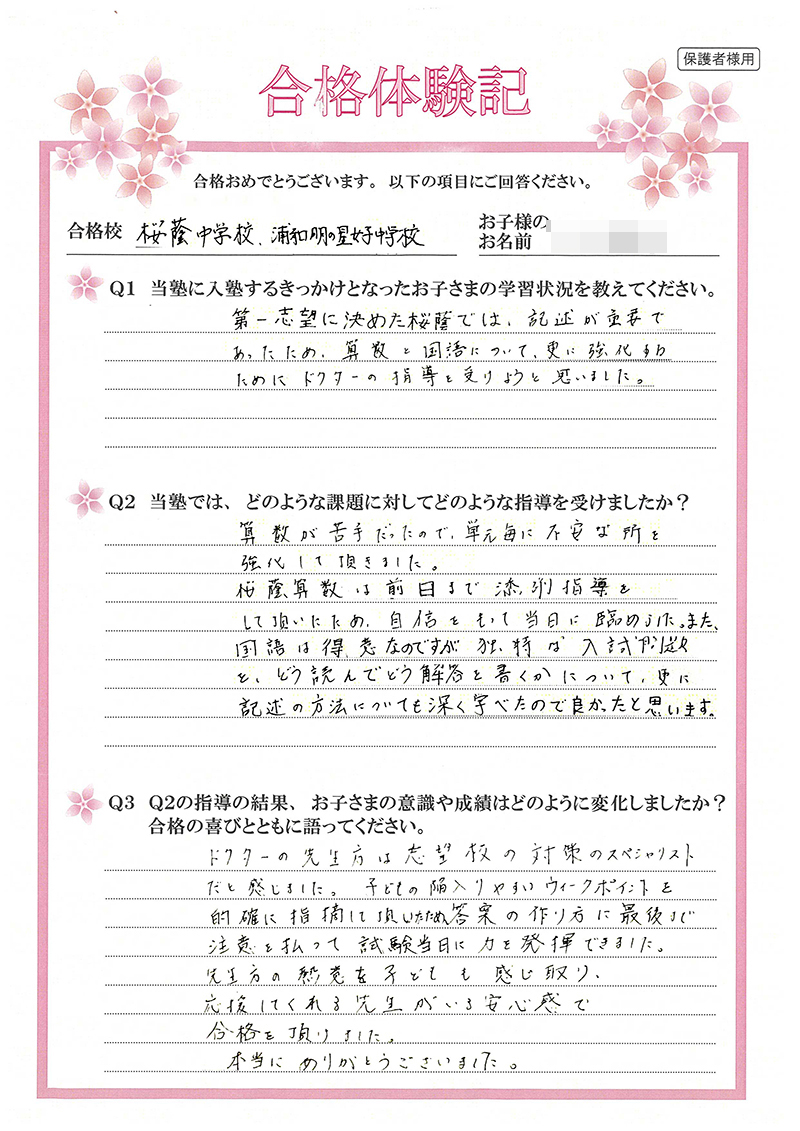 保護者様用
合格体験記
合格おめでとうございます。以下の項目にご回答ください。
合格校 桜蔭中学校、浦和明の星女子中学校
お子様の
お名前
Q1 当塾に入塾するきっかけとなったお子さまの学習状況を教えてください。
第一志望に決めた桜蔭では、記述が重要で
あったため、算数と国語について、更に強化する
ためにドクターの指導を受けようと思いました。
Q2 当塾では、どのような課題に対してどのような指導を受けましたか？
算数が苦手だったので、単元毎に不安な所を
強化して頂きました。
桜蔭算数は前日まで添削指導を
して頂いたため、自信をもって当日に臨めました。また、
国語は得意なのですが独特な入試問題を
を、どう読んでどう解答を書くかについて、更に
記述の方法についても深く学べたので良かったと思います。
Q3 Q2の指導の結果、お子さまの意識や成績はどのように変化しましたか？
合格の喜びとともに語ってください。
ドクターの先生方は志望校の対策のスペシャリスト
だと感じました。子どもの陥入りやすいウィークポイントを
的確に指摘して頂いたため、答案の作り方に最後まで
注意を払って試験当日に力を発揮できました。
先生方の熱意を子どもも感じ取り、
応援してくれる先生がいる安心感で
合格を頂けました。
本当にありがとうございました。